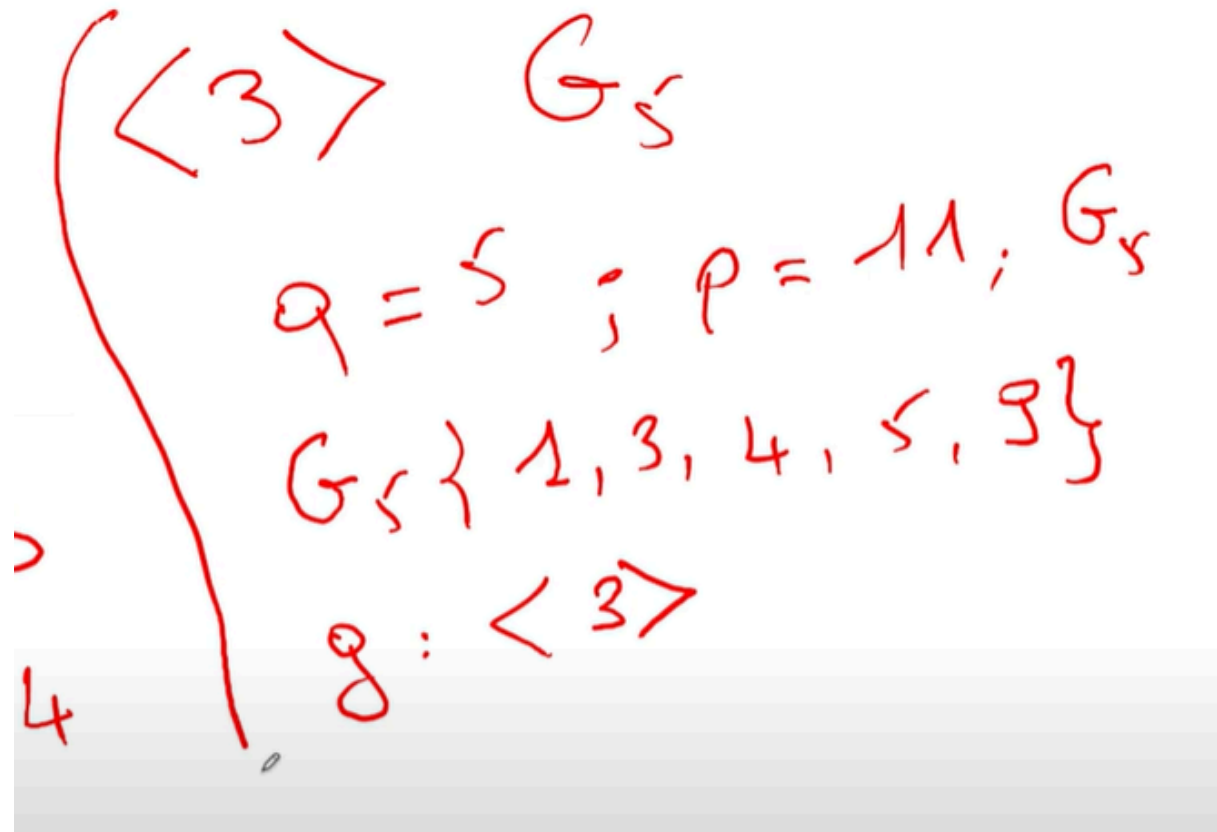 <3> G₅
q = 5 ; p = 11, G₅
G₅{ 1, 3, 4, 5, 9}
g : <3>
4